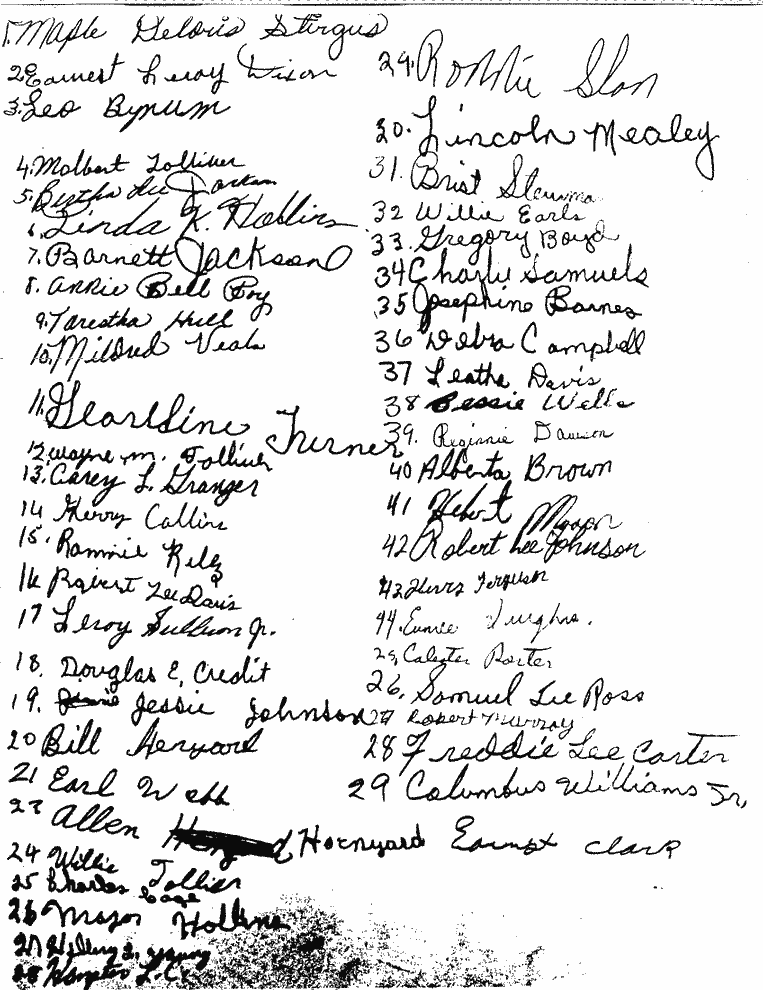 1. Maple Deloris Sturgus
2. Earnest Leroy Dixon
3. Leo Bynum
4. Malbert Tolliver
5. Bertha Lee Jackson
6. Linda K. Hollins
7. Barnett Jackson
8. Annie Bell Poy
9. Tarestha Hull
10. Mildred Veals
11. Gearldine Turner
12. Wayne M. Tolliver
13. Carey L. Granger
14 Collins
15. Rammie Riley
16 Robert Lee Davis
17 Leroy Jr.
18. Douglas E, Credit
19. Jessie Johnson
20 Bill
21 Earl Webb
23 Allen Hornyard Earnest Clark
24 Willie Tollier
25 Charles Cage
26 Major Hollins
27
28 Hampton L.C.
29. Ronnie Slan
30. Lincoln Mealey
31. Brist
32 Willie Earls
33. Gregory Boyd
34 Charlie Samuels
35 Josephine Barnes
36 Debra Campbell
37 Leatha Davis
38 Bessie Wells
39. Dawson
40 Alberta Brown
41 Hebert
42 Robert Lee Johnson
43 Ferguson
44. Eunice Vaughns.
25, Porter
26, Samuel Lee Ross
27 Robert Murray
28 Freddie Lee Carter
29 Columbus Williams Jr,